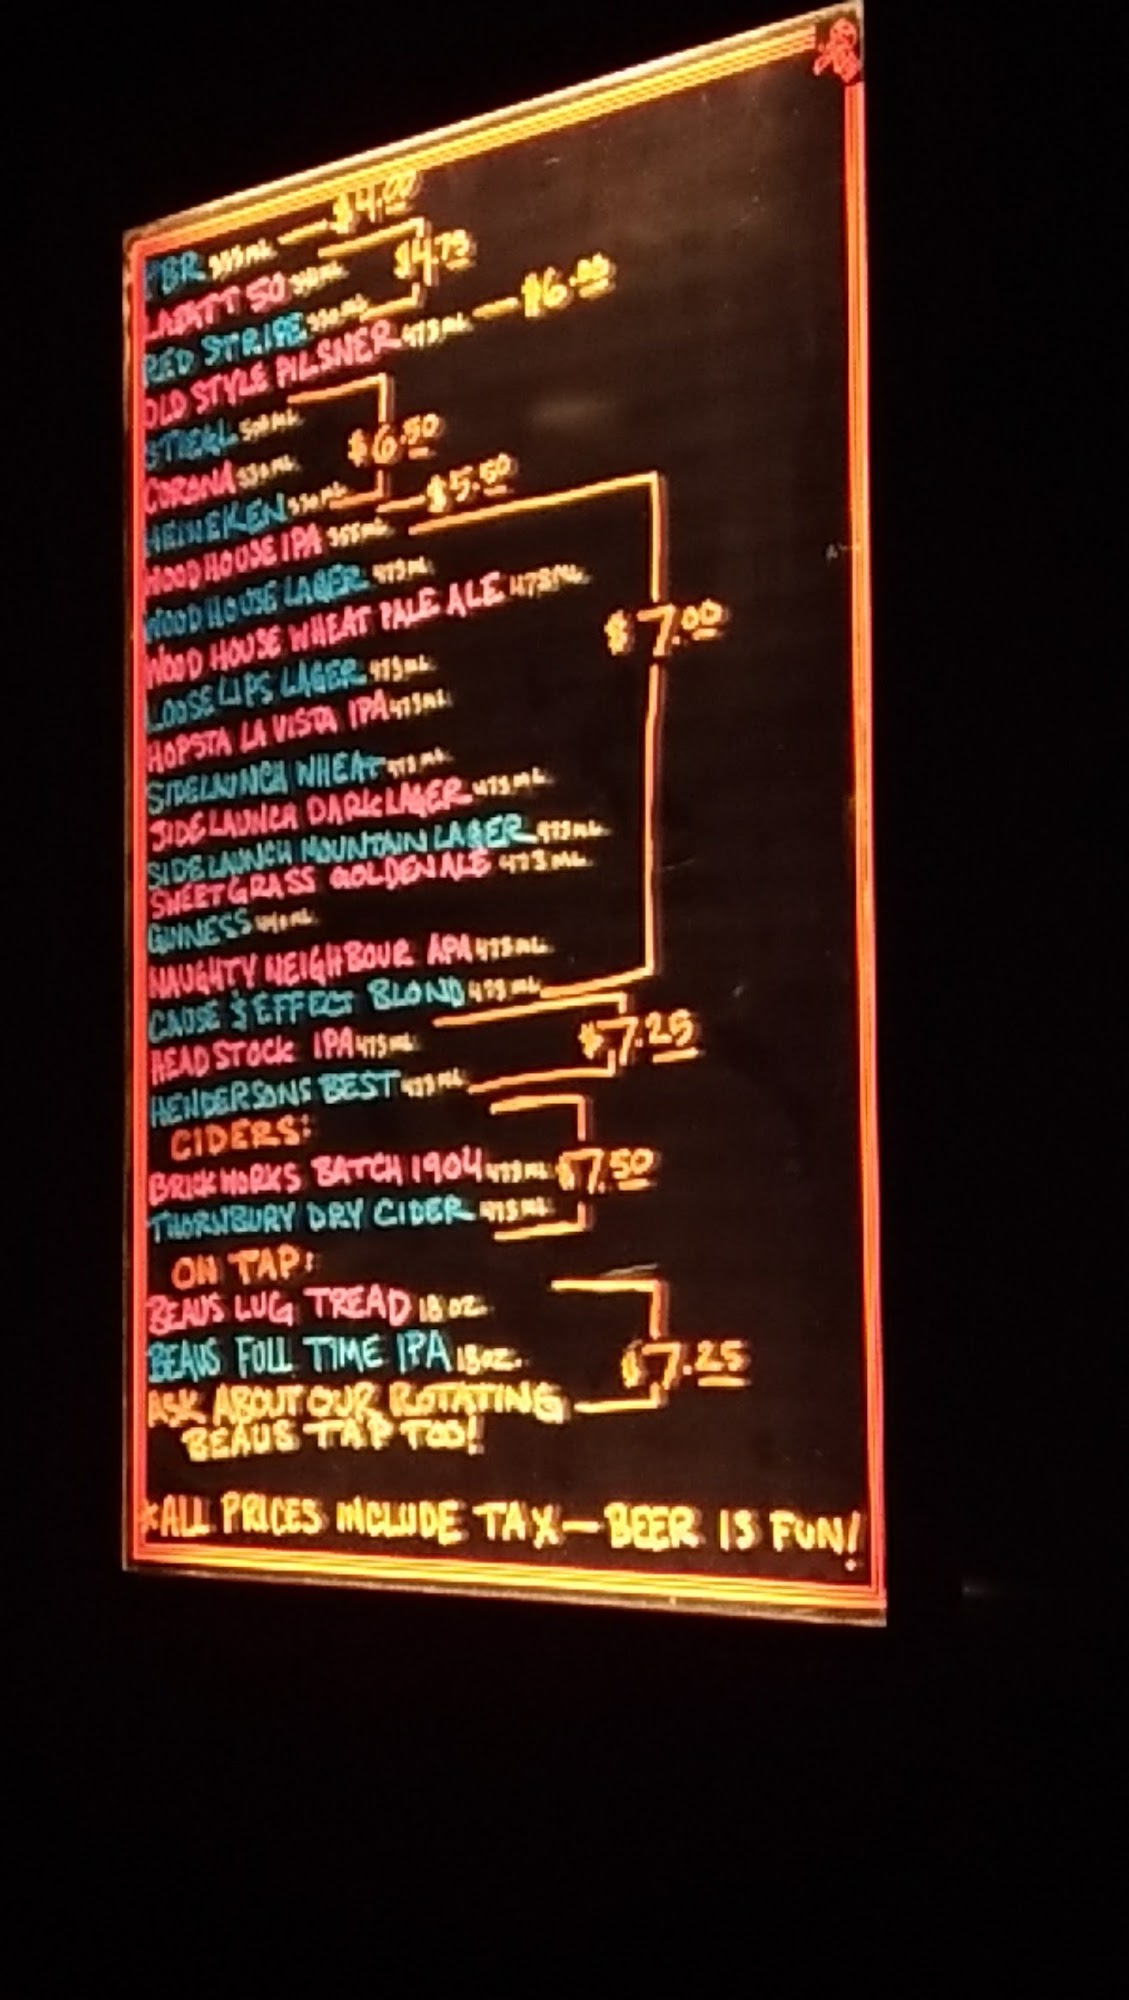 PBR 355ML — $4.00
LABATT 50 341ML
$4.75
RED STRIPE 330ML
OLD STYLE PILSNER 473ML — $6.00
STIEGL 500ML
CORONA 330ML
$6.50
HEINEKEN 330ML
WOOD HOUSE IPA 355ML — $5.50
WOOD HOUSE LAGER 473ML
WOOD HOUSE WHEAT PALE ALE 473ML
$7.00
LOOSE LIPS LAGER 473ML
HOPSTA LA VISTA IPA 473ML
SIDELAUNCH WHEAT 473ML
SIDELAUNCH DARK LAGER 473ML
SIDELAUNCH MOUNTAIN LAGER 473ML
SWEETGRASS GOLDEN ALE 473ML
GUINESS 440ML
NAUGHTY NEIGHBOUR APA 473ML
CAUSE & EFFECT BLOND 473ML
HEADSTOCK IPA 473ML
$7.25
HENDERSONS BEST 473ML
CIDERS:
BRICKWORKS BATCH 1904 473ML $7.50
THORNBURY DRY CIDER 473ML
ON TAP:
BEAUS LUG TREAD 18 OZ.
BEAUS FULL TIME IPA 18 OZ. $7.25
ASK ABOUT OUR ROTATING
BEAUS TAP TOO!
*ALL PRICES INCLUDE TAX — BEER IS FUN!